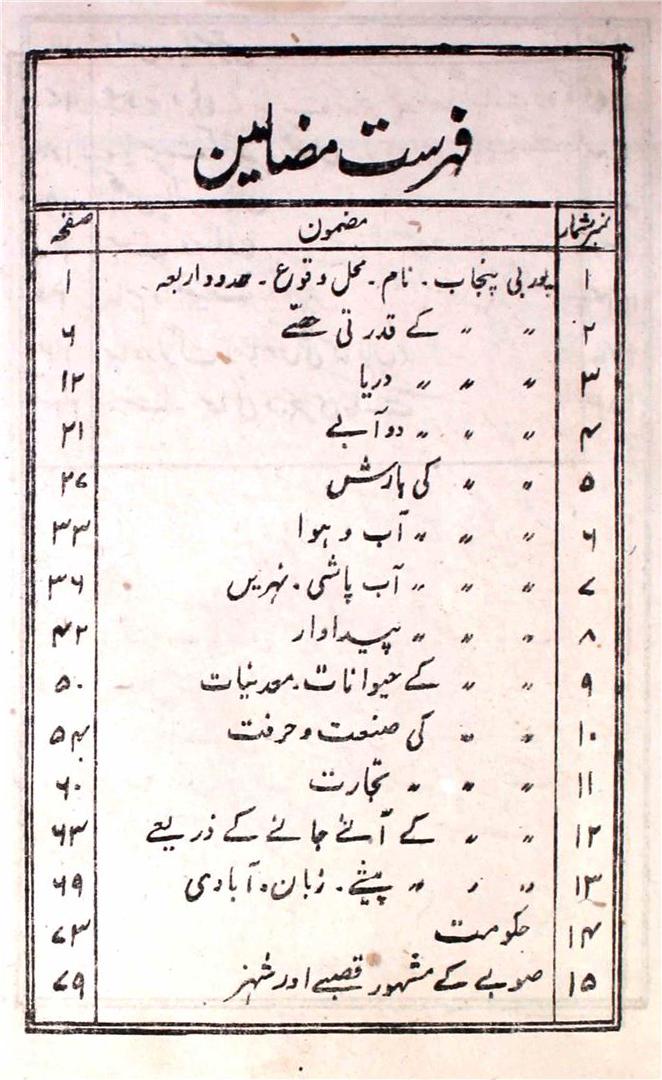 فہرست مضامین
نمبر شمار مضمون صفحہ
۱ پوربی پنجاب۔ نام۔ محل وقوع۔ حدود اربعہ ۱
۲ " " " کے قدرتی حصّے ۶
۳ " " " " دریا ۱۲
۴ " " " " دو آبے ۲۱
۵ " " " کی بارش ۲۷
۶ " " " " آب و ہوا ۳۳
۷ " " " " آب پاشی۔ نہریں ۳۶
۸ " " " " پیداوار ۴۲
۹ " " " کے حیوانات۔ معدنیات ۵۰
۱۰ " " " کی صنعت و حرفت ۵۴
۱۱ " " " " تجارت ۶۰
۱۲ " " " کے آنے جانے کے ذریعے ۶۳
۱۳ " " " " پیشے۔ زبان۔ آبادی ۶۹
۱۴ حکومت ۷۳
۱۵ صوبے کے مشہور قصبے اور شہر ۷۹